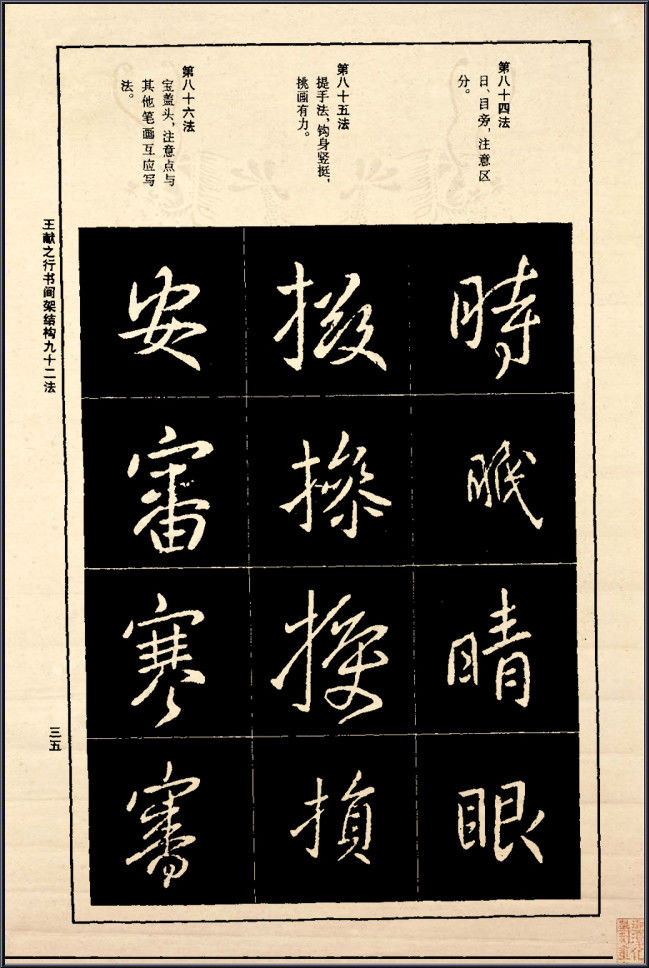 第八十四法
日、目旁，注意区
分。
第八十五法
提手法，钩身竖挺，
挑画有力。
第八十六法
宝盖头，注意点与
其他笔画互应写
法。
時
眠
晴
眼
操
損
安
審
寒
王献之行书间架结构九十二法
三五